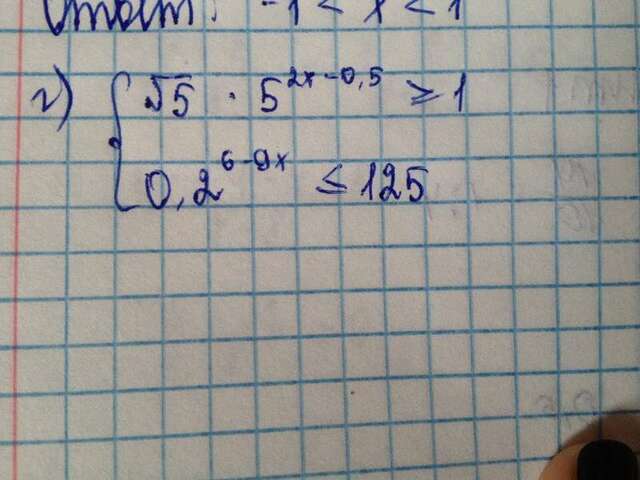 Ответ: -1 < x < 1
г) { √5 · 5^{2x-0,5} ≥ 1
0,2^{6-9x} ≤ 125